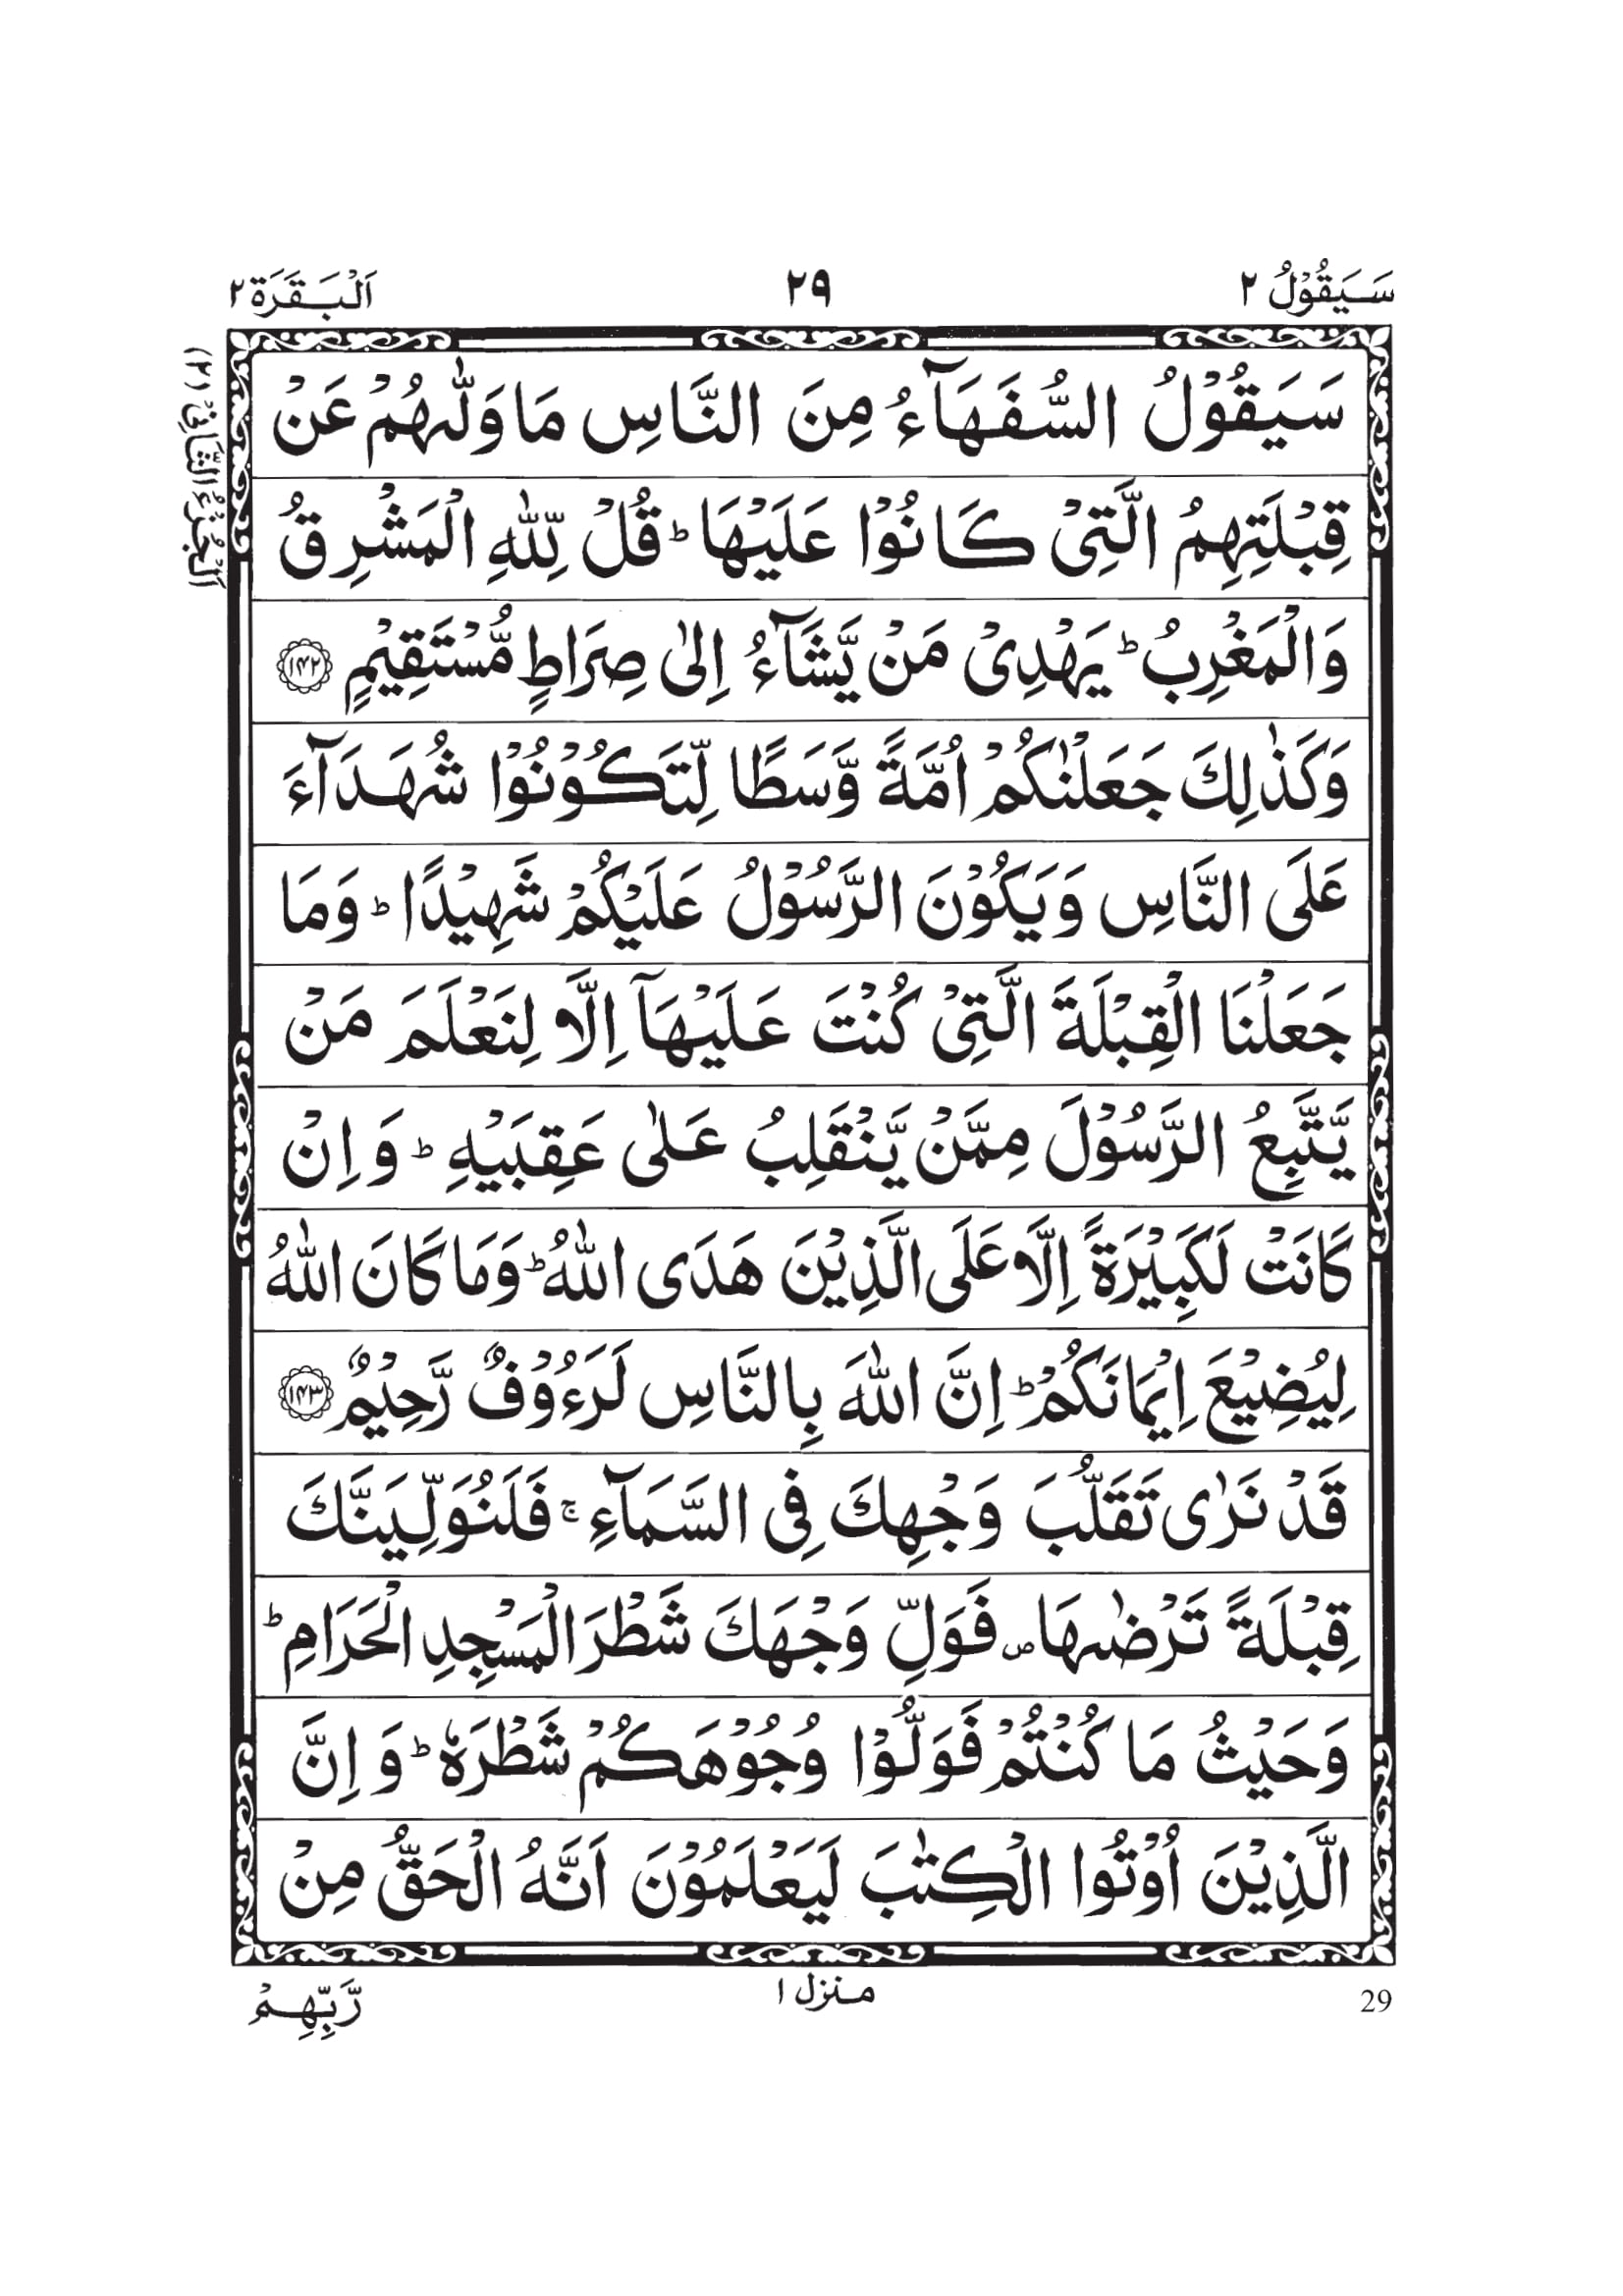 سَيَقُوْلُ ٢
٢٩
اَلْبَقَرَة ٢
اَلْجُزْءُ الثَّانِيْ (٢)
سَيَقُوْلُ السُّفَهَآءُ مِنَ النَّاسِ مَا وَلّٰىهُمْ عَنْ
قِبْلَتِهِمُ الَّتِيْ كَانُوْا عَلَيْهَا ؕ قُلْ لِّلّٰهِ الْمَشْرِقُ
وَالْمَغْرِبُ ؕ يَهْدِيْ مَنْ يَّشَآءُ اِلٰى صِرَاطٍ مُّسْتَقِيْمٍ ﴿١٤٢﴾
وَكَذٰلِكَ جَعَلْنٰكُمْ اُمَّةً وَّسَطًا لِّتَكُوْنُوْا شُهَدَآءَ
عَلَى النَّاسِ وَيَكُوْنَ الرَّسُوْلُ عَلَيْكُمْ شَهِيْدًا ؕ وَمَا
جَعَلْنَا الْقِبْلَةَ الَّتِيْ كُنْتَ عَلَيْهَآ اِلَّا لِنَعْلَمَ مَنْ
يَّتَّبِعُ الرَّسُوْلَ مِمَّنْ يَّنْقَلِبُ عَلٰى عَقِبَيْهِ ؕ وَاِنْ
كَانَتْ لَكَبِيْرَةً اِلَّا عَلَى الَّذِيْنَ هَدَى اللّٰهُ ؕ وَمَا كَانَ اللّٰهُ
لِيُضِيْعَ اِيْمَانَكُمْ ؕ اِنَّ اللّٰهَ بِالنَّاسِ لَرَءُوْفٌ رَّحِيْمٌ ﴿١٤٣﴾
قَدْ نَرٰى تَقَلُّبَ وَجْهِكَ فِي السَّمَآءِ ۚ فَلَنُوَلِّيَنَّكَ
قِبْلَةً تَرْضٰىهَا ص فَوَلِّ وَجْهَكَ شَطْرَ الْمَسْجِدِ الْحَرَامِ ؕ
وَحَيْثُ مَا كُنْتُمْ فَوَلُّوْا وُجُوْهَكُمْ شَطْرَهٗ ؕ وَاِنَّ
الَّذِيْنَ اُوْتُوا الْكِتٰبَ لَيَعْلَمُوْنَ اَنَّهُ الْحَقُّ مِنْ
29
منزل ١
رَّبِّهِمْ